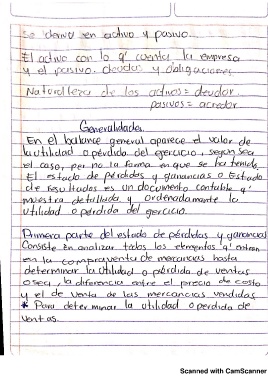 Se derivo en activo y pasivo...
El activo con lo q' cuenta la empresa
y el pasivo. deudas y obligaciones.
Naturaleza de los activos = deudor
pasivos = acredor.
Generalidades.
En el balance general aparece el valor de
la utilidad o pérdida del ejercicio, según sea
el caso, per no la forma en que se ha tenido.
El estado de pérdidas y ganancias o Estado
de resultados es un documento contable q'
muestra detallada y ordenadamente la
utilidad o pérdida del ejercicio.
Primera parte del estado de pérdidas y ganancias
Consiste en analizar todos los elementos q' entran
en la compraventa de mercancias hasta
determinar la utilidad o pérdida de ventas
o sea, la diferencia entre el precio de costo
y el de venta de las mercancias vendidas
* Para determinar la utilidad o perdida de
ventas.
Scanned with CamScanner